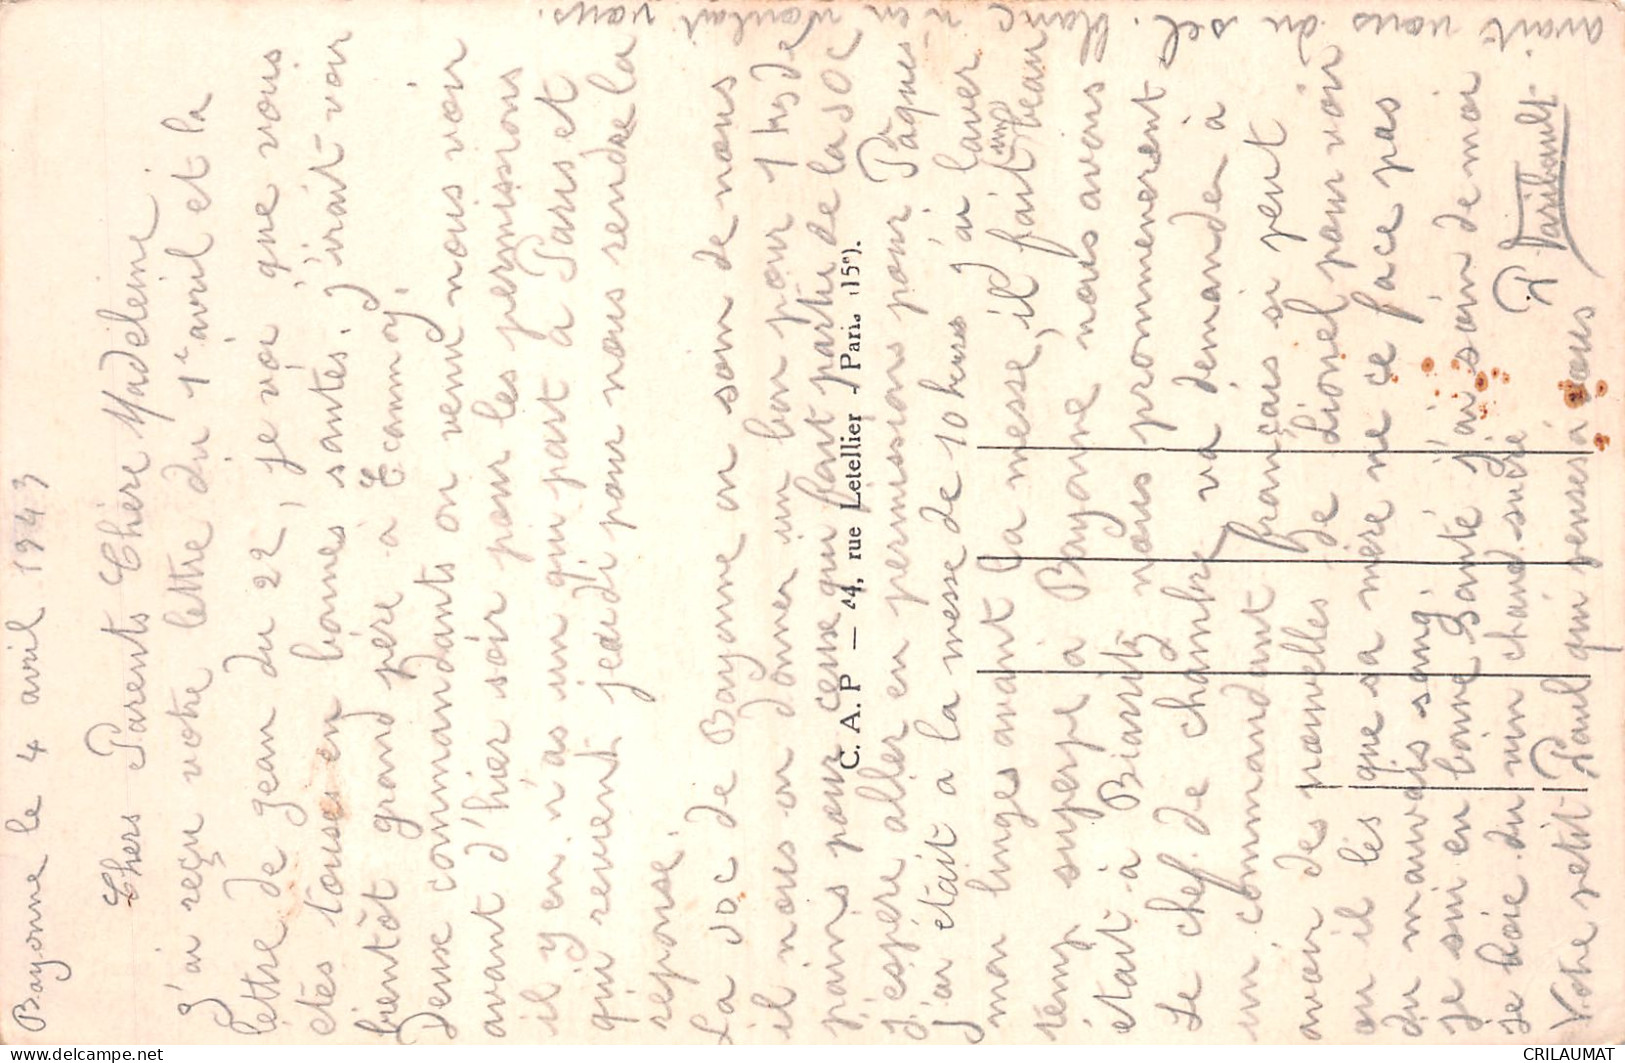 Bayonne le 4 avril 1943
Chers Parents Chère Madeleine
J'ai reçu votre lettre du 1er avril et la
lettre de Jean du 22, je voi que vous
êtes touses en bonnes santés. J'irait voir
bientôt grand père à
Deuse commandants on venu nous voir
avant d'hier soir pour les permissions
il y en n'as un qui part à Paris et
qui revient jeudi pour nous rendre la
reponse.
La soc de Bayonne on soin de nous
il nous on donner un bon pour 1 kg de
pains pour ceuse qui fait partie de la soc
J'espère aller en permissions pour Pâques
j'ai était a la messe de 10 heures j'ai laver
mon linges avant la messe, il fait un beau
temp superpe à Bayonne nous avons
était à Biarritz nous prommenerent
Le chef de chambre va demander à
un commandant français si peut
avoir des nouvelles de Lionel pour voir
ou il lés que sa mère ne ce face pas
du mauvais sang.
je sui en bonne santé j'ai soin de moi
je boie du vin chaud sucré
Votre petit Paul qui pense à vous
P Faribault
avait vous du sel. blanc n'en voulait vous.
C. A. P — 44, rue Letellier - Paris (15e).
CRILAUMAT